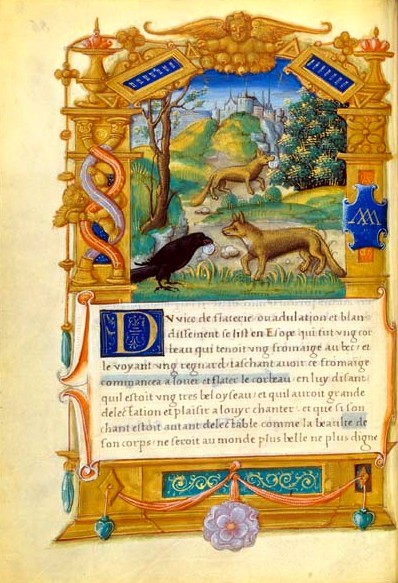 Du vice de flaterie ou adulation et blan
dissement se list en Esope qui fut vng cor
beau qui tenoit vng fromaige au bec: et
le voyant vng regnard taschant auoir ce fromaige
commenca a louer et flater le corbeau en luy disant
quil estoit vng tres bel oyseau et quil auroit grande
delectation et plaisir a louyr chanter: et que si son
chant estoit autant delectable comme la beaulte de
son corps: ne seroit au monde plus belle ne plus digne